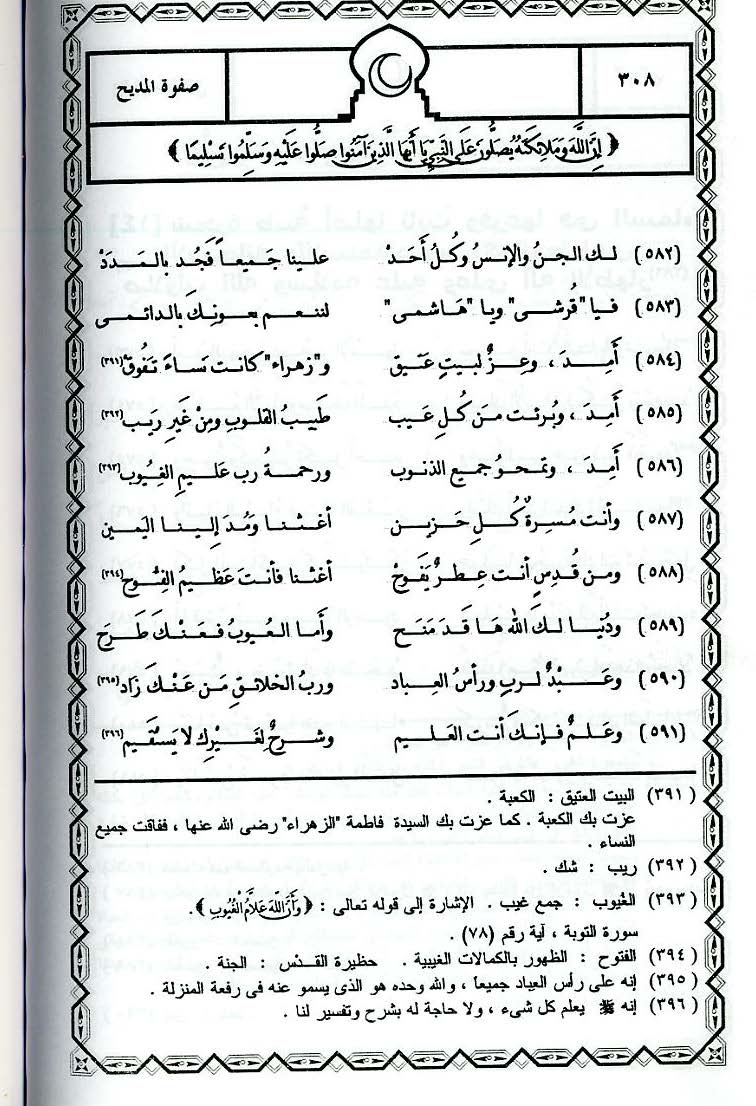 ٣٠٨ صفوة المديح
﴿ إِنَّ اللَّهَ وَمَلَائِكَتَهُ يُصَلُّونَ عَلَى النَّبِيِّ يَا أَيُّهَا الَّذِينَ آمَنُوا صَلُّوا عَلَيْهِ وَسَلِّمُوا تَسْلِيمًا ﴾
(٥٨٢) لك الجنُ والإنسُ وكُلُ أَحَدْ علينا جَميعاً فَجُد بالمَدَدْ
(٥٨٣) فيا "قُرشى" ويا "هَاشمى" لننعم بعونِكَ بالدائمى
(٥٨٤) أَمِدَ ، وعِزٌ لبيتٍ عَتيق و"زهراء" كانت نساءَ تَفُوقْ (٣٩١)
(٥٨٥) أَمِدَ ، وبُرئت من كُلِ عَيب طَبيبُ القلوبِ ومِنْ غَيرِ رَيب (٣٩٢)
(٥٨٦) أَمِدَ ، وتمحوُ جميع الذنوب ورحمةُ رب عَليمِ الغيُوب (٣٩٣)
(٥٨٧) وأنت مُسِرةٌ كُلِ حَزين أغثنا ومُد إلينا اليَمين
(٥٨٨) ومن قُدسٍ أنت عِطرٌ يَفُوحْ أغثنا فأنتَ عَظيمُ الفُتُوح (٣٩٤)
(٥٨٩) ودُنيا لكَ اللهُ هَا قَد مَنَح وأما العُيوبُ فعَنكَ طَرَحَ
(٥٩٠) وعَبْدٌ لربٍ ورأسُ العِباد وربُ الخلائقِ مَن عَنكَ زَاد (٣٩٥)
(٥٩١) وعَلمٌ فإنك أنت العليم وشرحٌ لغَيْرِك لا يَستَقيم (٣٩٦)
(٣٩١) البيت العتيق : الكعبة .
عزت بك الكعبة . كما عزت بك السيدة فاطمة "الزهراء" رضى الله عنها ، ففاقت جميع
النساء .
(٣٩٢) ريب : شك .
(٣٩٣) الغُيوب : جمع غيب . الإشارة إلى قوله تعالى : ﴿ وَأَنَّ اللَّهَ عَلَّامُ الْغُيُوبِ ﴾ .
سورة التوبة ، آية رقم (٧٨) .
(٣٩٤) الفتوح : الظهور بالكمالات الغيبية . حظيرة القدْس : الجنة .
(٣٩٥) إنه على رأس العباد جميعاً ، والله وحده هو الذى يسمو عنه فى رفعة المنزلة .
(٣٩٦) إنه ﷺ يعلم كل شىء ، ولا حاجة له بشرح وتفسير لنا .